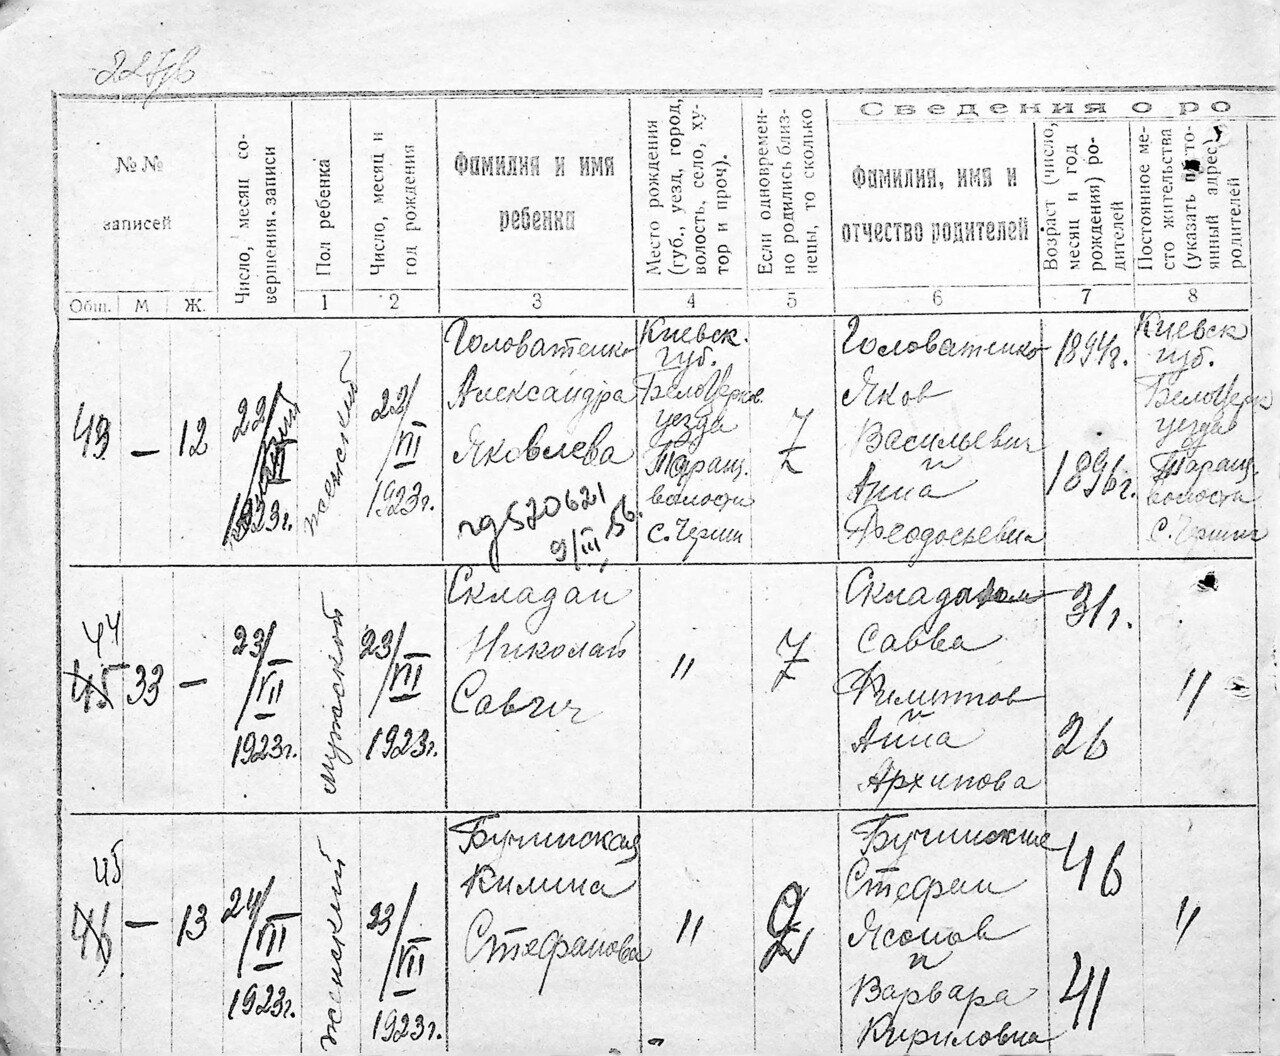 Сведения о ро
№ №
записей
Общ.
М
Ж.
Число, месяц со-
вершения записи
Пол ребенка
1
Число, месяц и
год рождения
2
Фамилия и имя
ребенка
3
Место рождения
(губ., уезд, город,
волость, село, ху-
тор и проч).
4
Если одновремен-
но родились близ-
нецы, то сколько
5
Фамилия, имя и
отчество родителей
6
Возраст (число,
месяц и год
рождения) ро-
дителей
7
Постоянное ме-
сто жительства
(указать
адрес)
родителей
8
43
—
12
22/VII
1923г.
женский
22/VII
1923г.
Головатенко
Александра
Яковлева
9/III 56.
Киевск.
губ.
БелоЦерков.
уезда
Таращ.
волости
с.
Головатенко
Яков
Васильевич
и
Анна
Феодосьевна
1894г.
1896г.
Киевск
губ.
БелоЦерк
уезда
Таращ.
волости
с.
44
45
33
—
23/VII
1923г.
мужской
23/VII
1923г.
Складан
Николай
Савич
"
Савва
Филиппов
и
Анна
Архипова
31г.
26
"
45
46
—
13
24/VII
1923г.
женский
23/VII
1923г.
Бучинская
Килина
Стефанова
"
2
Бучинские
Стефан
Ясонов
и
Варвара
Кириловна
46
41
"